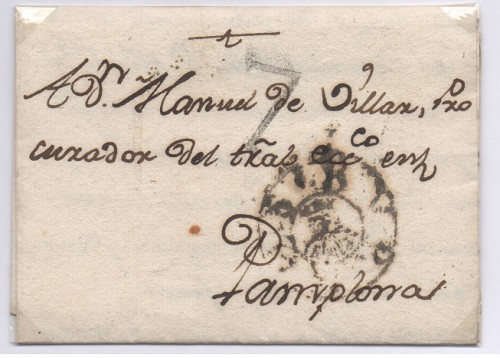 7
A Dn. Manuel de Villar, Pro
curador del trãl Ecco en
Pamplona